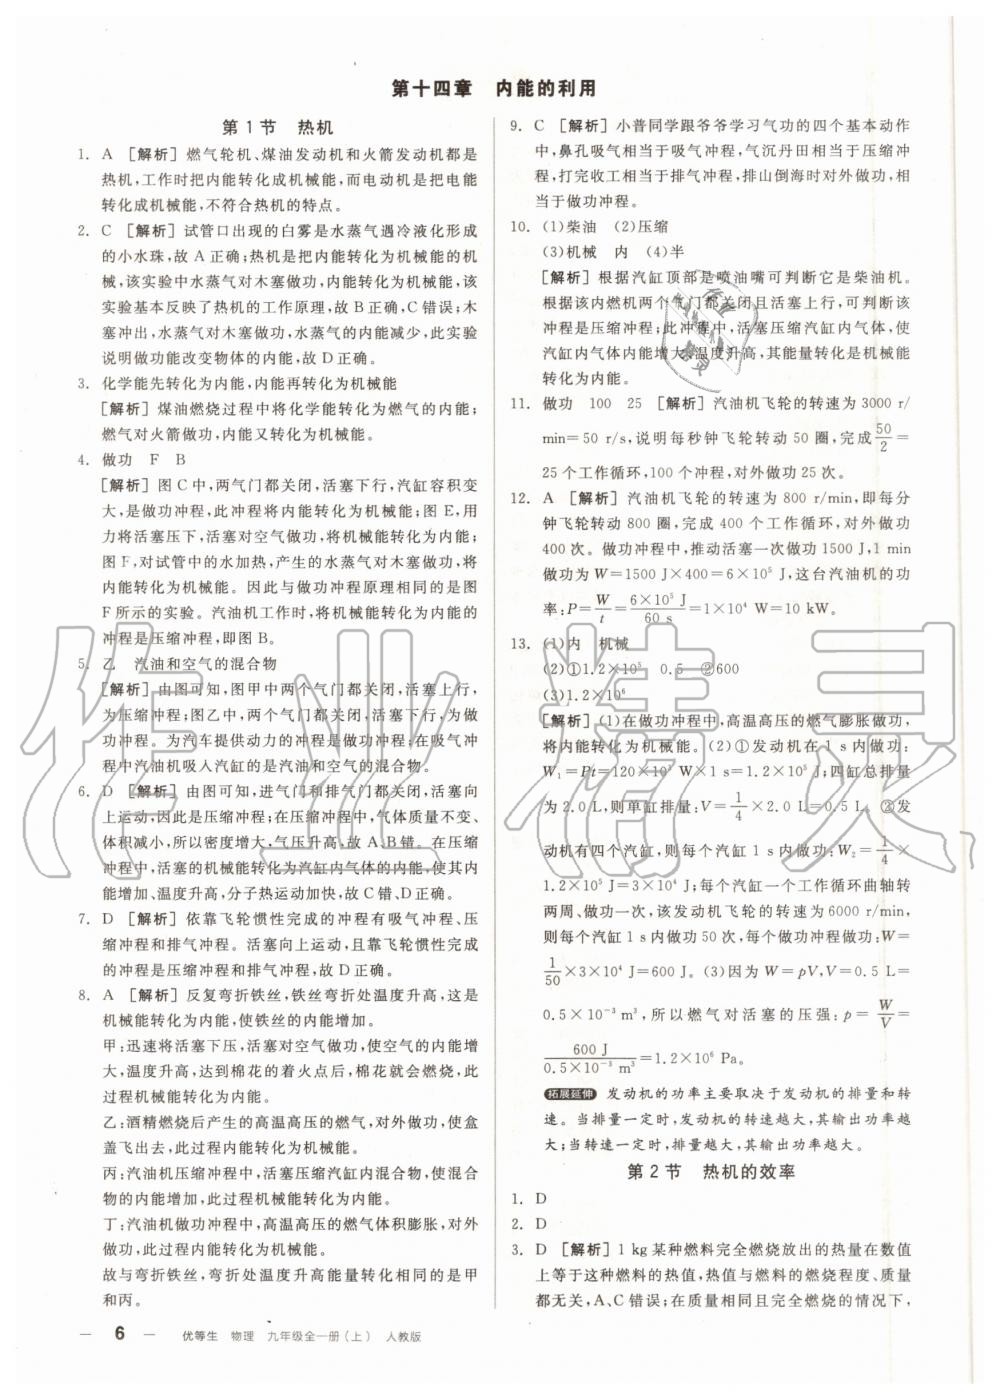 第十四章　内能的利用
第 1 节　热机
1. A 【解析】燃气轮机、煤油发动机和火箭发动机都是
热机,工作时把内能转化成机械能,而电动机是把电能
转化成机械能,不符合热机的特点。
2. C 【解析】试管口出现的白雾是水蒸气遇冷液化形成
的小水珠,故 A 正确;热机是把内能转化为机械能的机
械,该实验中水蒸气对木塞做功,内能转化为机械能,该
实验基本反映了热机的工作原理,故 B 正确,C 错误;木
塞冲出,水蒸气对木塞做功,水蒸气的内能减少,此实验
说明做功能改变物体的内能,故 D 正确。
3. 化学能先转化为内能,内能再转化为机械能
【解析】煤油燃烧过程中将化学能转化为燃气的内能;
燃气对火箭做功,内能又转化为机械能。
4. 做功　F　B
【解析】图 C 中,两气门都关闭,活塞下行,汽缸容积变
大,是做功冲程,此冲程将内能转化为机械能;图 E,用
力将活塞压下,活塞对空气做功,机械能转化为内能;
图 F,对试管中的水加热,产生的水蒸气对木塞做功,将
内能转化为机械能。因此与做功冲程原理相同的是图
F 所示的实验。汽油机工作时,将机械能转化为内能的
冲程是压缩冲程,即图 B。
5. 乙　汽油和空气的混合物
【解析】由图可知,图甲中两个气门都关闭,活塞上行,
为压缩冲程;图乙中,两个气门都关闭,活塞下行,为做
功冲程。为汽车提供动力的冲程是做功冲程;在吸气冲
程中汽油机吸入汽缸的是汽油和空气的混合物。
6. D 【解析】由图可知,进气门和排气门都关闭,活塞向
上运动,因此是压缩冲程;在压缩冲程中,气体质量不变、
体积减小,所以密度增大,气压升高,故 A、B 错。在压缩
冲程中,活塞的机械能转化为汽缸内气体的内能,使其内
能增加、温度升高,分子热运动加快,故 C 错、D 正确。
7. D 【解析】依靠飞轮惯性完成的冲程有吸气冲程、压
缩冲程和排气冲程。活塞向上运动,且靠飞轮惯性完成
的冲程是压缩冲程和排气冲程,故 D 正确。
8. A 【解析】反复弯折铁丝,铁丝弯折处温度升高,这是
机械能转化为内能,使铁丝的内能增加。
甲:迅速将活塞下压,活塞对空气做功,使空气的内能增
大,温度升高,达到棉花的着火点后,棉花就会燃烧,此
过程机械能转化为内能。
乙:酒精燃烧后产生的高温高压的燃气,对外做功,使盒
盖飞出去,此过程内能转化为机械能。
丙:汽油机压缩冲程中,活塞压缩汽缸内混合物,使混合
物的内能增加,此过程机械能转化为内能。
丁:汽油机做功冲程中,高温高压的燃气体积膨胀,对外
做功,此过程内能转化为机械能。
故与弯折铁丝,弯折处温度升高能量转化相同的是甲
和丙。
9. C 【解析】小普同学跟爷爷学习气功的四个基本动作
中,鼻孔吸气相当于吸气冲程,气沉丹田相当于压缩冲
程,打完收工相当于排气冲程,排山倒海时对外做功,相
当于做功冲程。
10. (1)柴油　(2)压缩
(3)机械　内　(4)半
【解析】根据汽缸顶部是喷油嘴可判断它是柴油机。
根据该内燃机两个气门都关闭且活塞上行,可判断该
冲程是压缩冲程;此冲程中,活塞压缩汽缸内气体,使
汽缸内气体内能增大、温度升高,其能量转化是机械能
转化为内能。
11. 做功　100　25 【解析】汽油机飞轮的转速为 3000 r/
min=50 r/s,说明每秒钟飞轮转动 50 圈,完成 50/2 =
25 个工作循环,100 个冲程,对外做功 25 次。
12. A 【解析】汽油机飞轮的转速为 800 r/min,即每分
钟飞轮转动 800 圈,完成 400 个工作循环,对外做功
400 次。做功冲程中,推动活塞一次做功 1500 J,1 min
做功为 W=1500 J×400=6×10⁵ J,这台汽油机的功
率:P=W/t=6×10⁵ J/60 s=1×10⁴ W=10 kW。
13. (1)内　机械
(2)①1.2×10⁵　0.5　②600
(3)1.2×10⁶
【解析】(1)在做功冲程中,高温高压的燃气膨胀做功,
将内能转化为机械能。(2)①发动机在 1 s 内做功:
W₁=Pt=120×10³ W×1 s=1.2×10⁵ J;四缸总排量
为 2.0 L,则单缸排量:V=1/4×2.0 L=0.5 L。②发
动机有四个汽缸,则每个汽缸 1 s 内做功:W₂=1/4×
1.2×10⁵ J=3×10⁴ J;每个汽缸一个工作循环曲轴转
两周、做功一次,该发动机飞轮的转速为 6000 r/min,
则每个汽缸 1 s 内做功 50 次,每个做功冲程做功:W=
1/50×3×10⁴ J=600 J。(3)因为 W=pV,V=0.5 L=
0.5×10⁻³ m³,所以燃气对活塞的压强:p=W/V=
600 J/0.5×10⁻³ m³=1.2×10⁶ Pa。
拓展延伸　发动机的功率主要取决于发动机的排量和转
速。当排量一定时,发动机的转速越大,其输出功率越
大;当转速一定时,排量越大,其输出功率越大。
第 2 节　热机的效率
1. D
2. D
3. D 【解析】1 kg 某种燃料完全燃烧放出的热量在数值
上等于这种燃料的热值,热值与燃料的燃烧程度、质量
都无关,A、C 错误;在质量相同且完全燃烧的情况下,
— 6 —　优等生　物理　九年级全一册(上)　人教版
作业精灵